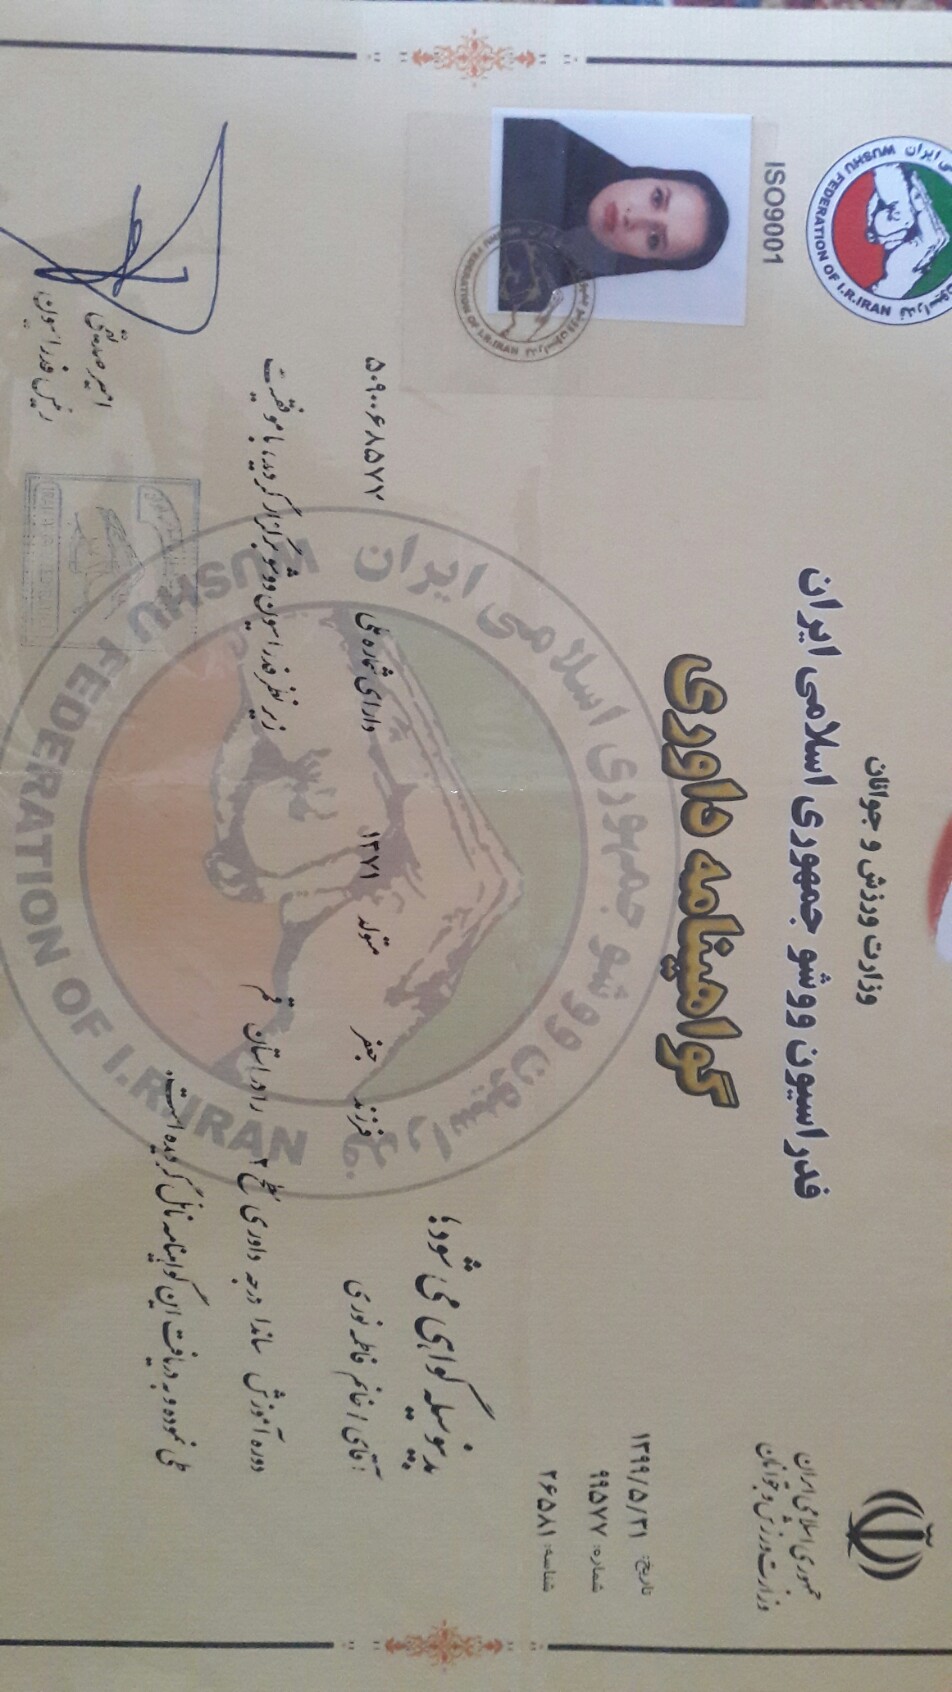 جمهوری اسلامی ایران
وزارت ورزش و جوانان
وزارت ورزش و جوانان
فدراسیون ووشو جمهوری اسلامی ایران
گواهینامه داوری
WUSHU FEDERATION OF I.R.IRAN
ISO9001
تاریخ: ۱۳۹۹/۵/۳۱
شماره: ۹۹۵۷۷
شناسه: ۲۶۵۸۱
بدینوسیله گواهی می شود:
آقای / خانم فاطمه نوری فرزند جعفر متولد ۱۳۷۱ دارای شماره ملی ۵۹۰۰۶۸۵۷۷
دوره آموزش ساندا درجه داوری سطح ۳ را در استان قم زیر نظر فدراسیون ووشو برگزار گردید، با موفقیت
طی نموده و به دریافت این گواهینامه نائل گردیده است.
امیر صدیقی
رئیس فدراسیون
فدراسیون ووشو جمهوری اسلامی ایران
WUSHU FEDERATION OF I.R.IRAN
FEDERATION OF I.R.IRAN